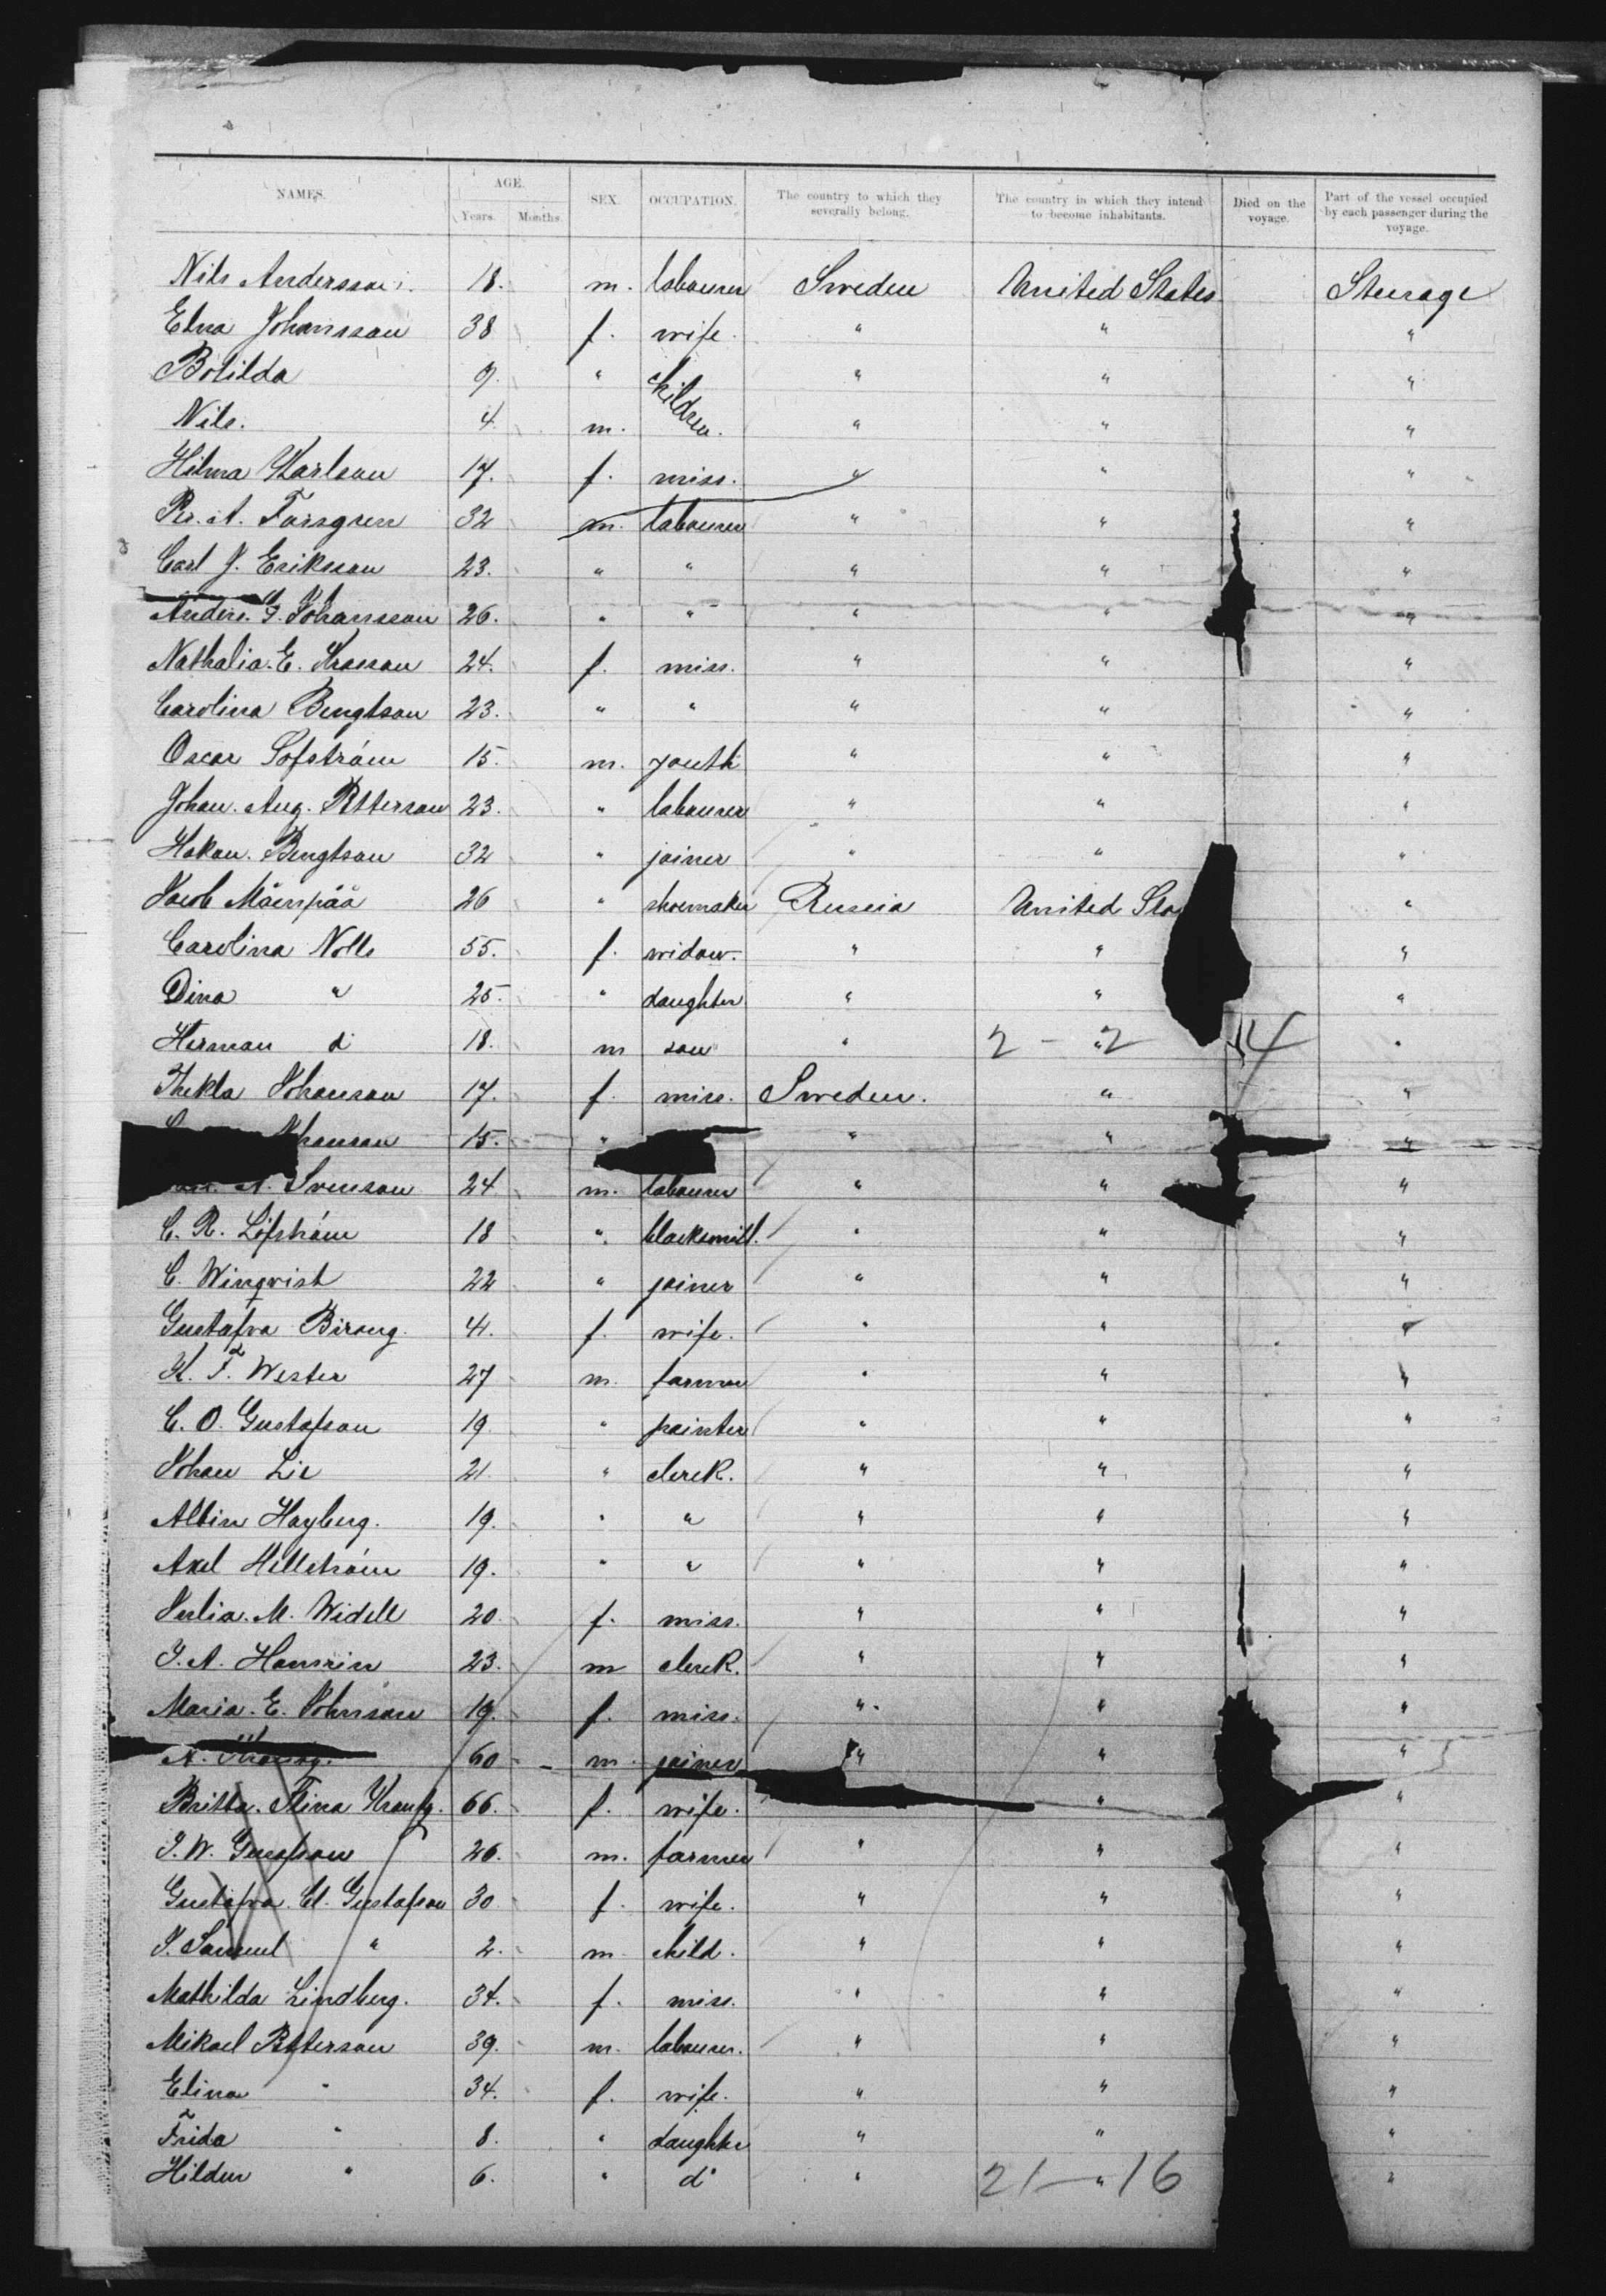 NAMES. AGE. SEX. OCCUPATION. The country to which they severally belong. The country in which they intend to become inhabitants. Died on the voyage. Part of the vessel occupied by each passenger during the voyage.
Years. Months.
Nils Andersson 18. m. labourer Sweden United States Steerage
Elna Johansson 38 f. wife. " " "
Botilda 9. " children. " " "
Nils. 4. m. " " "
Hilma Karlson 17. f. miss. " " "
Per. A. Forsgren 32 m. labourer " " "
Carl J. Eriksson 23. " " " " "
Anders. G. Johansson 26. " " " " "
Nathalia. E. 24. f. miss. " " "
Carolina Bengtson 23. " " " " "
Oscar Lofström 15. m. youth " " "
Johan. Aug. Petterson 23. " labourer " " "
Hakan. Bengtson 32 " joiner " " "
Jacob Mäenpää 26 " shoemaker Russia United Sta "
Carolina 55. f. widow. " " "
Dina " 25. " daughter " " "
Herman d 18. m son " 2 - " 2 14 "
Thekla Johanson 17. f. miss. Sweden. " "
hanson 15. " " " "
A. Svenson 24 m. labourer " " "
C. R. Löfström 18 " blacksmith. " " "
C. Winqvist 22 " joiner " " "
Gustafva 41. f. wife. " " "
K. F. Wester 27 m. farmer " " "
C. O. Gustafson 19 " painter " " "
Johan Lie 21 " clerk. " " "
Albin Hagberg. 19. " " " " "
Axel Hellström 19. " " " " "
Julia. M. Widell 20. f. miss. " " "
J. A. Hamrin 23. m clerk. " " "
Maria. E. Johnson 19. f. miss. " " "
A. 60 m. joiner " " "
Britta. Stina 66. f. wife. " "
J. W. Gustafson 26. m. farmer " " "
Gustafva. Cl. Gustafson 30 f. wife. " " "
J. Samuel " 2. m child. " " "
Mathilda Lindberg. 34. f. miss. " " "
Mikael Petterson 39. m. labourer. " " "
Elina " 34. f. wife. " " "
Frida " 8. " daughter " " "
Hildur " 6. " do " 21 - " 16 "